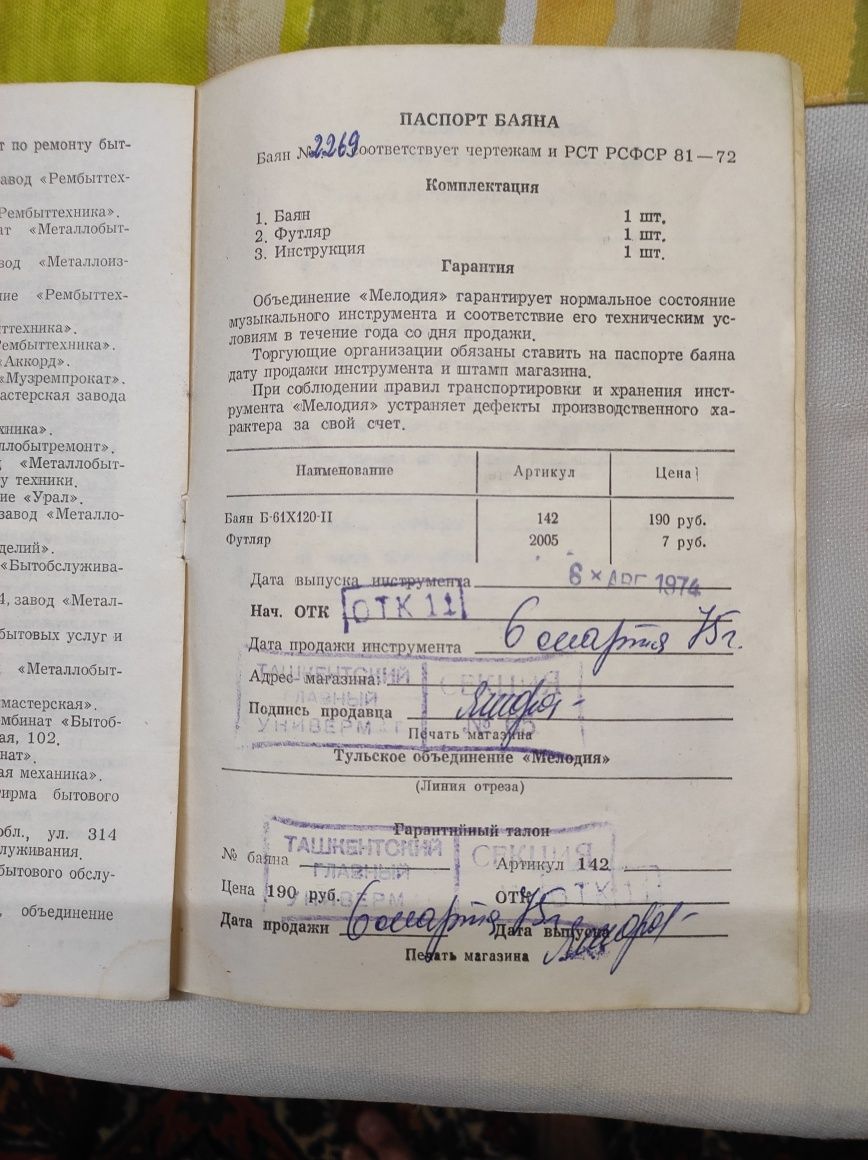 т по ремонту быт-
авод «Рембыттех-
Рембыттехника».
ат «Металлобыт-
вод «Металлоиз-
ние «Рембыттех-
ттехника».
Рембыттехника».
«Аккорд».
«Музремпрокат».
астерская завода
хника».
ллобытремонт».
д «Металлобыт-
у техники.
ие «Урал».
завод «Металло-
делий».
«Бытобслужива-
4, завод «Метал-
бытовых услуг и
«Металлобыт-
мастерская».
омбинат «Бытоб-
ая, 102.
нат».
ая механика».
ирма бытового
обл., ул. 314
луживания.
бытового обслу-
, объединение
ПАСПОРТ БАЯНА
Баян № 2269 соответствует чертежам и РСТ РСФСР 81—72
Комплектация
1. Баян 1 шт.
2. Футляр 1 шт.
3. Инструкция 1 шт.
Гарантия
Объединение «Мелодия» гарантирует нормальное состояние
музыкального инструмента и соответствие его техническим ус-
ловиям в течение года со дня продажи.
Торгующие организации обязаны ставить на паспорте баяна
дату продажи инструмента и штамп магазина.
При соблюдении правил транспортировки и хранения инст-
румента «Мелодия» устраняет дефекты производственного ха-
рактера за свой счет.
Наименование Артикул Цена
Баян Б-61Х120-II 142 190 руб.
Футляр 2005 7 руб.
Дата выпуска инструмента 6 × АВГ 1974
Нач. ОТК ОТК 11
Дата продажи инструмента 6 марта 75г.
Адрес магазина:
ТАШКЕНТСКИЙ
ГЛАВНЫЙ
УНИВЕРМАГ
СЕКЦИЯ
Подпись продавца
Печать магазина
Тульское объединение «Мелодия»
(Линия отреза)
Гарантийный талон
ТАШКЕНТСКИЙ
ГЛАВНЫЙ
УНИВЕРМ
СЕКЦИЯ
№ баяна Артикул 142
Цена 190 руб. ОТК ОТК 11
Дата продажи 6 марта 75г Дата выпуска
Печать магазина